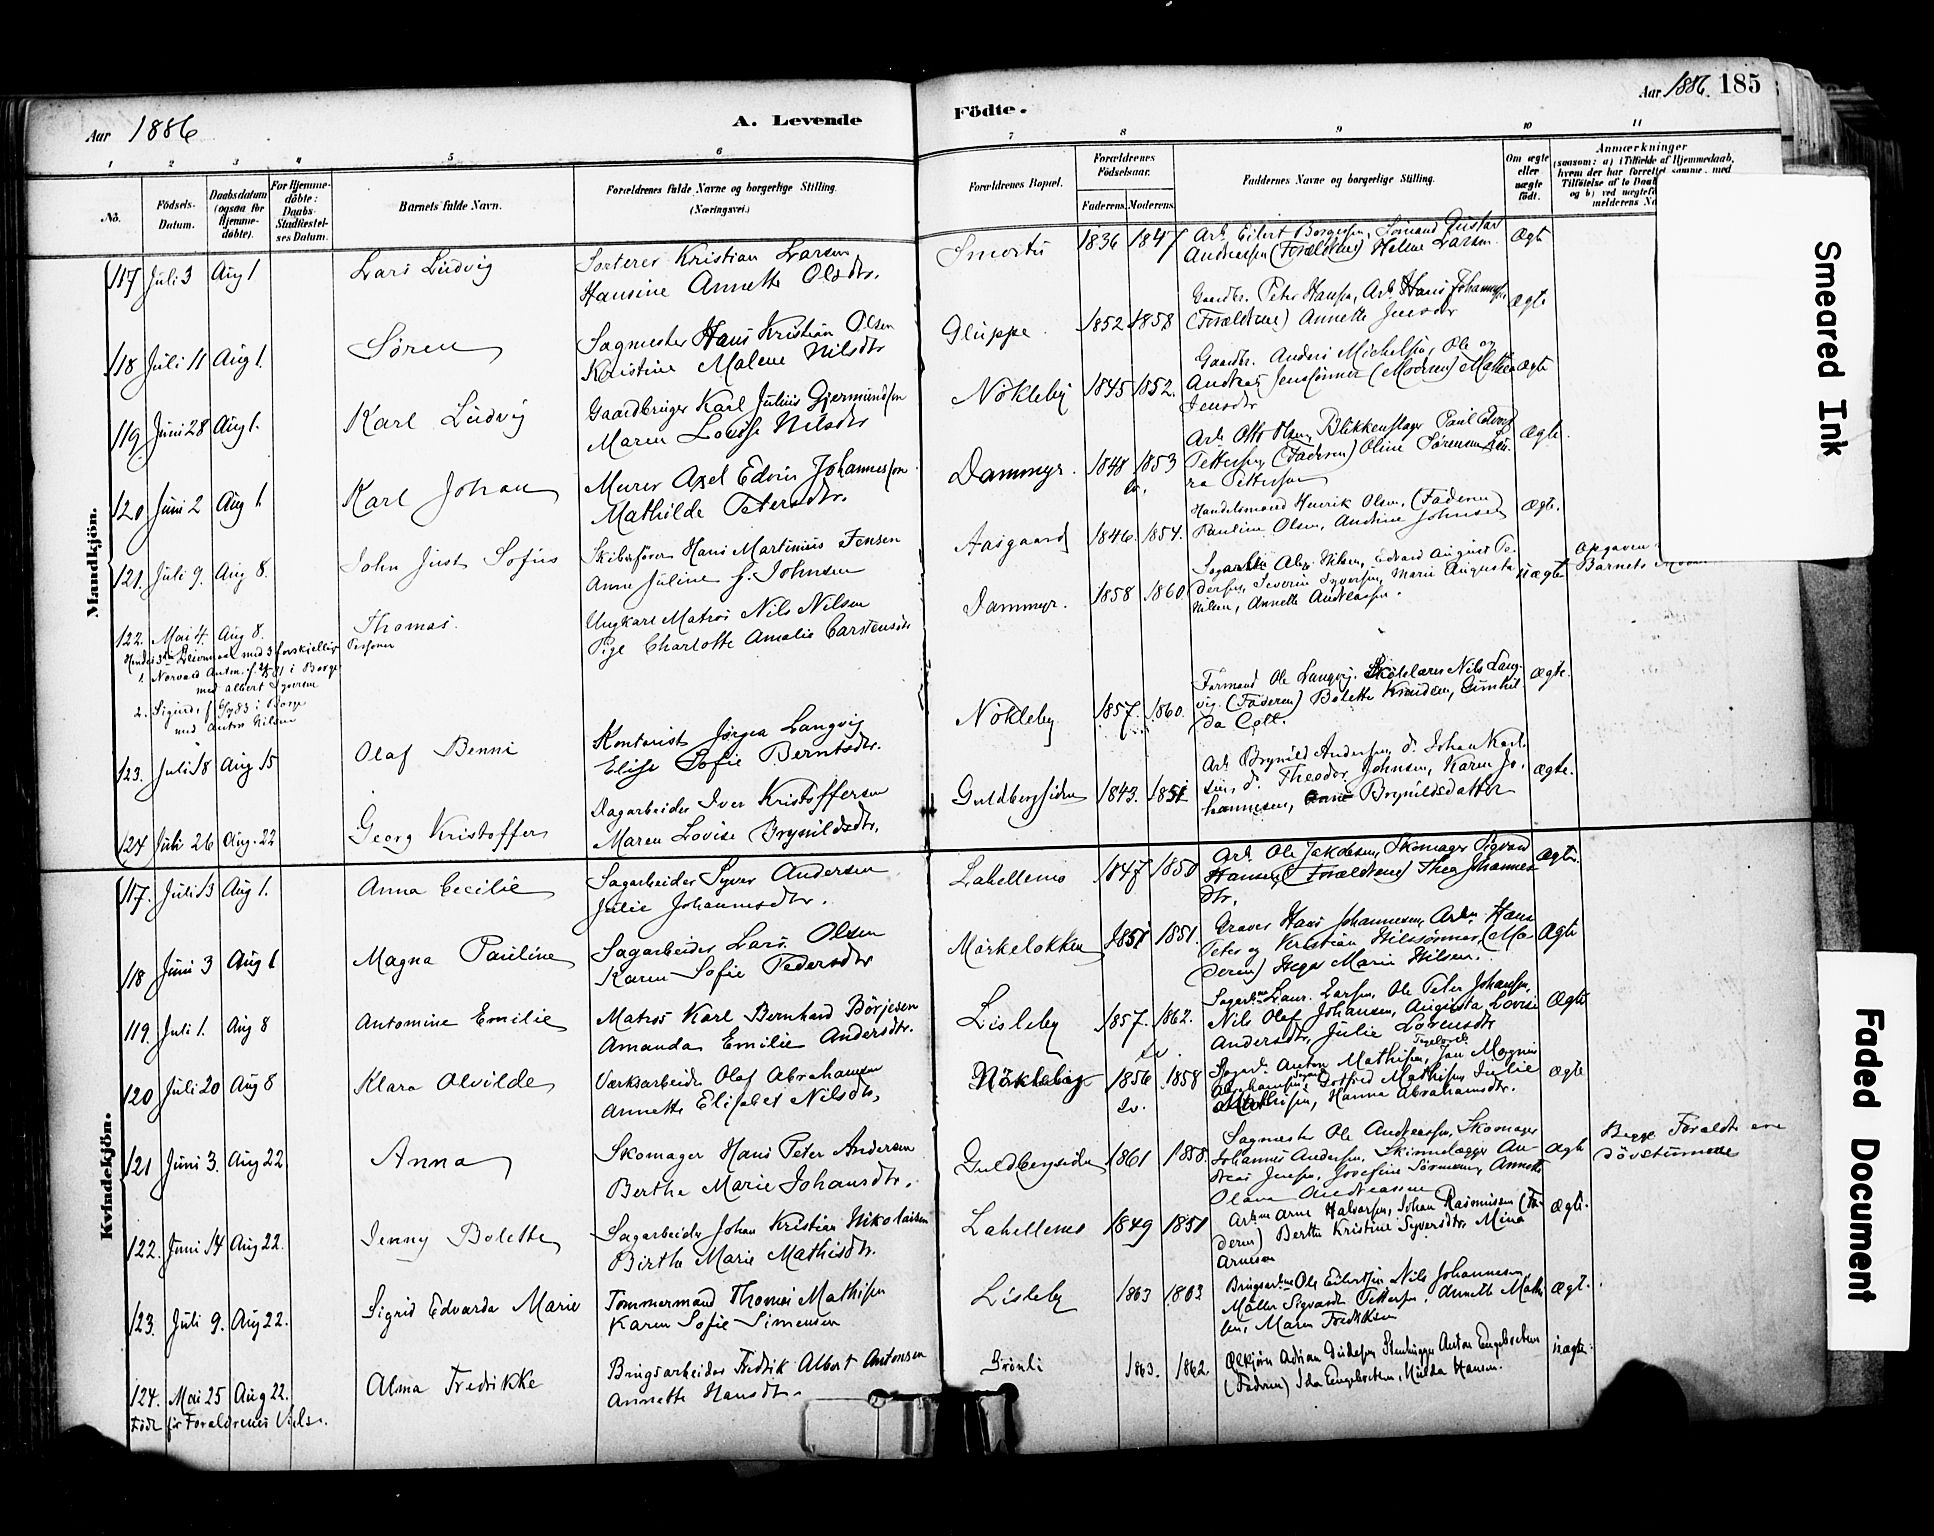 Aar 1886
A. Levende
Födte.
Aar 1886. 185
1 2 3 4 5 6 7 8 9 10 11
No.
Födsels-
Datum.
Daabsdatum
(ogsaa for
Hjemme-
döbte).
For Hjemme-
döbte:
Daabs-
Stadfæstel-
ses Datum.
Barnets fulde Navn.
Forældrenes fulde Navne og borgerlige Stilling.
(Næringsvei.)
Forældrenes Bopæl.
Forældrenes
Födselsaar.
Faderens. Moderens.
Faddernes Navne og borgerlige Stilling.
Om ægte
eller
uægte
født.
Anmærkninger
(saasom: a) i Tilfælde af Hjemmedaab,
hvem der har forrettet samme, med
Mandkjön.
117 Juli 3 Aug 1 Lars Ludvig Sorterer Kristian Larsen
Hansine Annette Olsdtr.
1836 1847 Arb. Eilert Borgersen, Sömand Gustav
Andreassen (Forældrene) Helene Larsen. Ægte
118 Juli 11 Aug 1. Søren Sagmester Hans Kristian Olsen
Kristine Malene Nilsdtr
Gluppe. 1852 1858 Gaardbr. Peter Hansen, Arb. Hans Johannesen
(Forældrene) Annette Jensdtr Ægte
119 Juni 28 Aug 1. Karl Ludvig Gaardbruger Karl Julius Gjermundsen
Maren Lovise Nilsdtr
Nökleby 1845 1852. Gaardbr. Anders Michelsen, Ole og
Andreas Jenssönner (Moderen) Mathea Ægte
Jensdtr
120 Juni 2 Aug 1 Karl Johan Murer Axel Edvin Johannessen
Mathilde Petersdtr.
Dammyr. 1848 1853 Arb. Otto Olsen, Blikkenslager Paul Edvard
Pettersen, (Faderen) Oline Sørensen, Ægte.
Pettersen
121. Juli 9. Aug 8. John Just Sofus Skibsförer Hans Martinius Jensen
Anne Juline J. Johnsen
Aasgaard 1846. 1854. Handelsmand Henrik Olsen, (Faderen)
Pauline Olsen, Andrine Johnsen Ægte.
122. Mai 4. Aug 8. Thomas. Ungkarl Matros Nils Nilsen
Pige Charlotte Amalie Carstensdtr
Dammyr. 1858 1860 Nilsen, Edvard August Pe-
dersen, Severin Syversen, Marie Augusta uægte
Nilsen, Annette Andreassen.
Opgaven
Barnets
Hendes 3die Leiermaal med 3 forskjellige Personer
1. Norvald Anton. f. i Borge
med Albert Syversen
2. Sigurd, f. i Borge
med Anton Nilsen
123. Juli 18 Aug 15 Olaf Benni Kontorist Jørgen Langvig
Elise Sofie Berntsdtr.
Nökleby 1857. 1860. Formand Ole Langvig. Skolelærer Nils Lang-
vig. (Faderen) Bolette Knudsen, Gunhil-
da Coll. Ægte.
124 Juli 26 Aug. 22 Georg Kristoffer Dagarbeider Iver Kristoffersen
Maren Lovise Brynildsdtr.
Guldbergsiden 1843. 1851 Arb. Brynild Andersen, do Johan Karl-
sen, do Theodor Johnsen, Karen Jo-
hannesen, Anne Brynildsdatter Ægte.
Kvindekjön.
117. Juli 13 Aug 1. Anna Cecilie Sagarbeider Syver Andersen
Julie Johannesdtr.
Lahellemo 1847 1850 Arb. Ole Jakobsen, Skomager Sigvard
Hansen, (Forældrene) Thea Johannes
dtr. Ægte.
118 Juni 3 Aug 1 Magna Pauline Sagarbeider Lars Olsen
Karen Sofie Pedersdtr
Mørkeløkken 1851 1851. Graver Hans Johannesen, Arb. Hans
Peter og Kristian Nilssönner, (Mo-
deren) Marie Nilsen. Ægte
119. Juli 1. Aug 8 Antomine Emilie Matros Karl Bernhard Börjesen
Amanda Emilie Andersdtr.
Lisleby 1857. 1862. Laur. Larsen, Ole Peter Johansen,
Nils Olaf Johansen, Augusta Lovise
Andersdtr, Julie Lorensdtr Ægte
120 Juli 20 Aug 8 Klara Alvilde Værksarbeider Olaf Abrahamsen
Annette Elisabet Nilsdtr.
Nökleby 1856 1858 Anton Mathisen, Jan Magnus
Abrahamsen, Gotfred Mathisen, Julie
Mathisen, Hanna Abrahamsdtr. Ægte
121 Juni 3. Aug 22 Anna Skomager Hans Peter Andersen
Berthe Marie Johansdtr.
Guldbergsiden 1861 1858 Sagmester Ole Andreassen, Skomager
Johannes Andersen, An-
dreas Jensen, Josefine Sörensen, Annette
Olava Andreassen Ægte
Begge Forældre ere
døvstumme
122. Juni 14 Aug 22. Jenny Bolette Sagarbeider Johan Kristian Nikolaisen
Birthe Marie Mathisdtr.
Lahellemo 1849 1851 Arbm Arne Halvorsen, Johan Rasmussen (Fa-
deren) Berthe Kristine Syversdtr, Mina
Arnesen Ægte.
123. Juli 9. Aug 22. Sigrid Edvarda Marie Tømmermand Thomas Mathisen
Karen Sofie Simensen
Lisleby 1863 1863 Ole Eilertsen, Nils Johannesen,
Möller Sigvard Pettersen, Annette Mathi-
sen, Maren Fredriksen Ægte.
124. Mai 25 Aug 22. Alma Fredrikke Brugsarbeider Fredrik Albert Antonsen
Annette Hansdtr.
Grönli 1863. 1862 Adrian Anton Engebretsen
(Faderen) Ida Engebretsen, Hulda Hansen. uægte.
Född för Forældrenes Vielse.
Smeared Ink
Faded Document